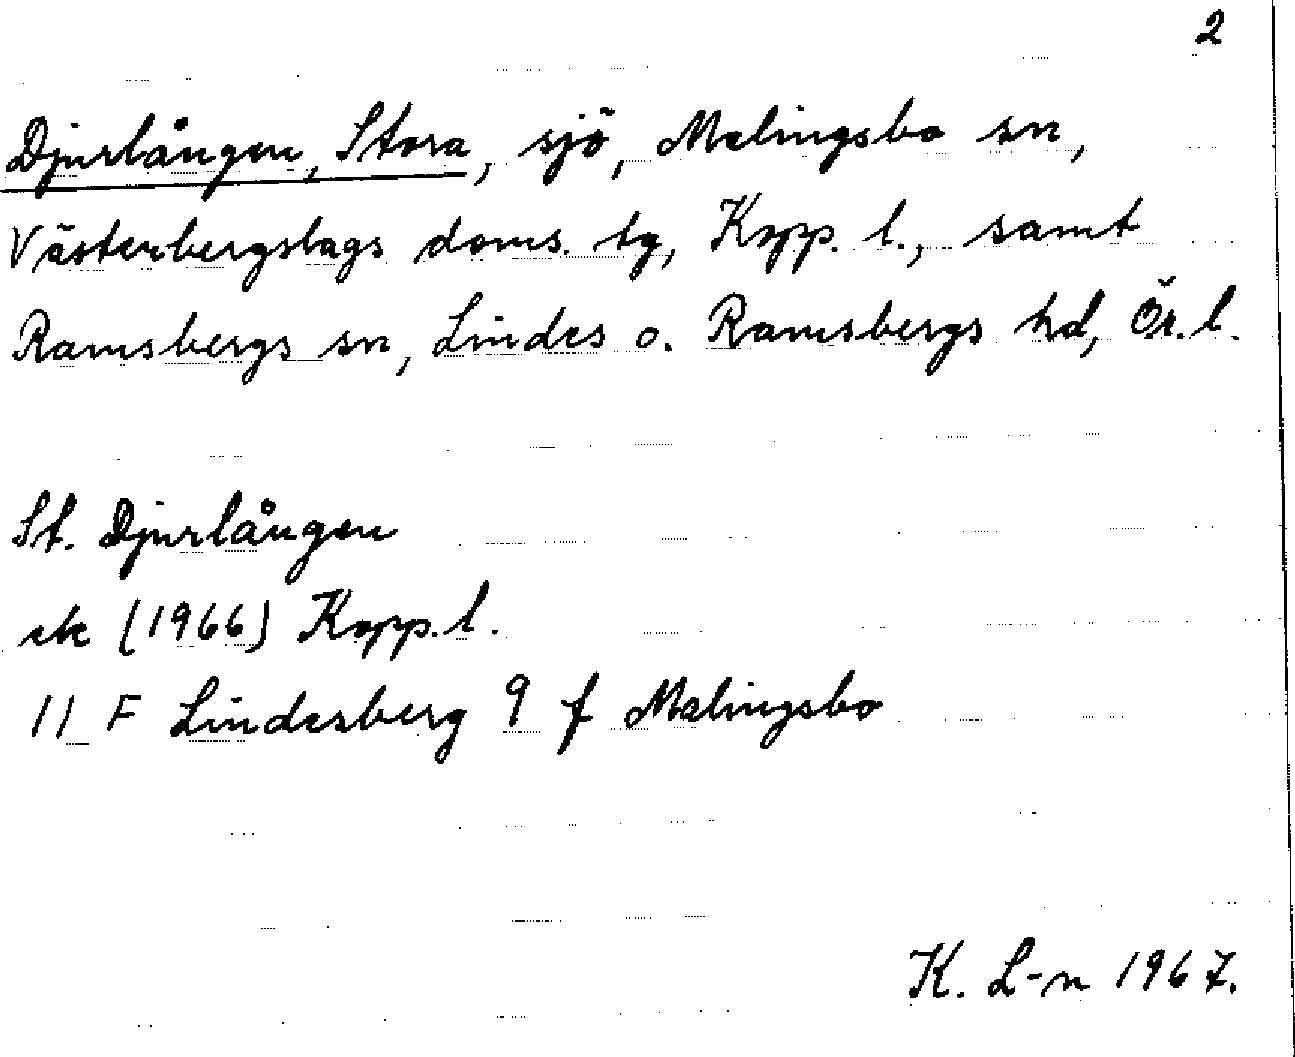 2
Djurlången, Stora, sjö, Malingsbo sn,
Västerbergslags doms. lg, Kopp. l., samt
Ramsbergs sn, Lindes o. Ramsbergs hd, Ör. l.
St. Djurlången
ek (1966) Kopp. l.
11 F Lindesberg 9 f Malingsbo
K. L-n 1967.